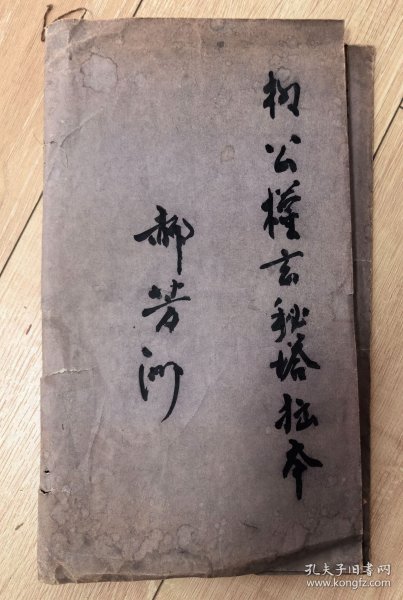 柳公權玄秘塔拓本
郝芳洲
孔夫子旧书网
www.kongfz.com